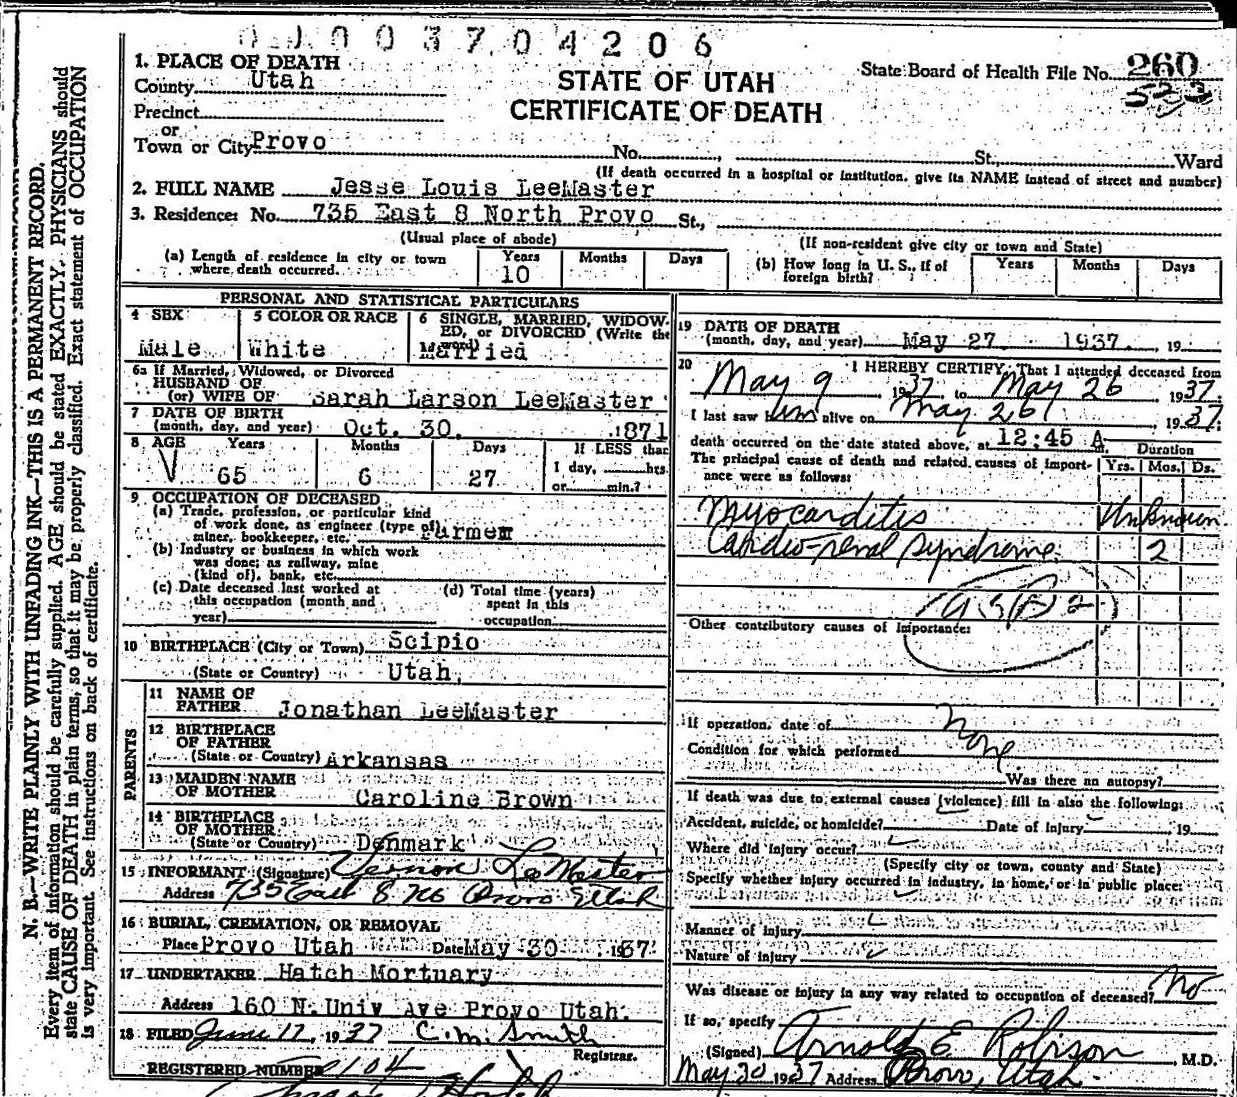 0 0 0 0 3 7 0 4 2 0 6
1. PLACE OF DEATH
County Utah
STATE OF UTAH
CERTIFICATE OF DEATH
State Board of Health File No. 260
Precinct
or
Town or City Provo
No. St., Ward
(If death occurred in a hospital or institution, give its NAME instead of street and number)
2. FULL NAME Jesse Louis LeeMaster
3. Residence: No. 735 East 8 North Provo St.,
(Usual place of abode) (If non-resident give city or town and State)
(a) Length of residence in city or town where death occurred. Years 10 Months Days
(b) How long in U. S., if of foreign birth? Years Months Days
PERSONAL AND STATISTICAL PARTICULARS
4 SEX Male
5 COLOR OR RACE White
6 SINGLE, MARRIED, WIDOW-
ED, or DIVORCED (Write the
word) Married
6a If Married, Widowed, or Divorced
HUSBAND OF
(or) WIFE OF Sarah Larson LeeMaster
7 DATE OF BIRTH
(month, day, and year) Oct. 30. 1871
8 AGE Years 65 Months 6 Days 27
If LESS than
1 day, hrs.
or min.?
9 OCCUPATION OF DECEASED
(a) Trade, profession, or particular kind
of work done, as engineer (type of)
miner, bookkeeper, etc. Farmer
(b) Industry or business in which work
was done; as railway, mine
(kind of), bank, etc.
(c) Date deceased last worked at
this occupation (month and
year)
(d) Total time (years)
spent in this
occupation
10 BIRTHPLACE (City or Town) Scipio
(State or Country) Utah.
PARENTS
11 NAME OF
FATHER Jonathan LeeMaster
12 BIRTHPLACE
OF FATHER
(State or Country) Arkansas
13 MAIDEN NAME
OF MOTHER Caroline Brown
14 BIRTHPLACE
OF MOTHER
(State or Country) Denmark
15 INFORMANT (Signature) Vernon LeeMaster
Address 735 East 8 No Provo Utah
16 BURIAL, CREMATION, OR REMOVAL
Place Provo Utah Date May 30 1937.
17 UNDERTAKER Hatch Mortuary
Address 160 N. Univ Ave Provo Utah.
18 FILED June 17, 1937 C. M. Smith
Registrar.
REGISTERED NUMBER 104
19 DATE OF DEATH
(month, day, and year) May 27 1937. 19
20 I HEREBY CERTIFY, That I attended deceased from
May 9 1937 to May 26 1937.
I last saw him alive on May 26 1937.
death occurred on the date stated above, at 12:45 A.
Duration
The principal cause of death and related causes of import-
ance were as follows: Yrs. Mos. Ds.
Myocarditis Unknown
Cardio-renal syndrome. 2
Other contributory causes of importance:
If operation, date of None
Condition for which performed
Was there an autopsy?
If death was due to external causes (violence) fill in also the following:
Accident, suicide, or homicide? Date of injury 19
Where did injury occur?
(Specify city or town, county and State)
Specify whether injury occurred in industry, in home, or in public place:
Manner of injury
Nature of injury
Was disease or injury in any way related to occupation of deceased? No
If so, specify
(Signed) Arnold E Robison M.D.
May 30 1937 Address Provo, Utah.
N. B.—WRITE PLAINLY WITH UNFADING INK—THIS IS A PERMANENT RECORD.
Every item of information should be carefully supplied. AGE should be stated EXACTLY. PHYSICIANS should
state CAUSE OF DEATH in plain terms, so that it may be properly classified. Exact statement of OCCUPATION
is very important. See instructions on back of certificate.